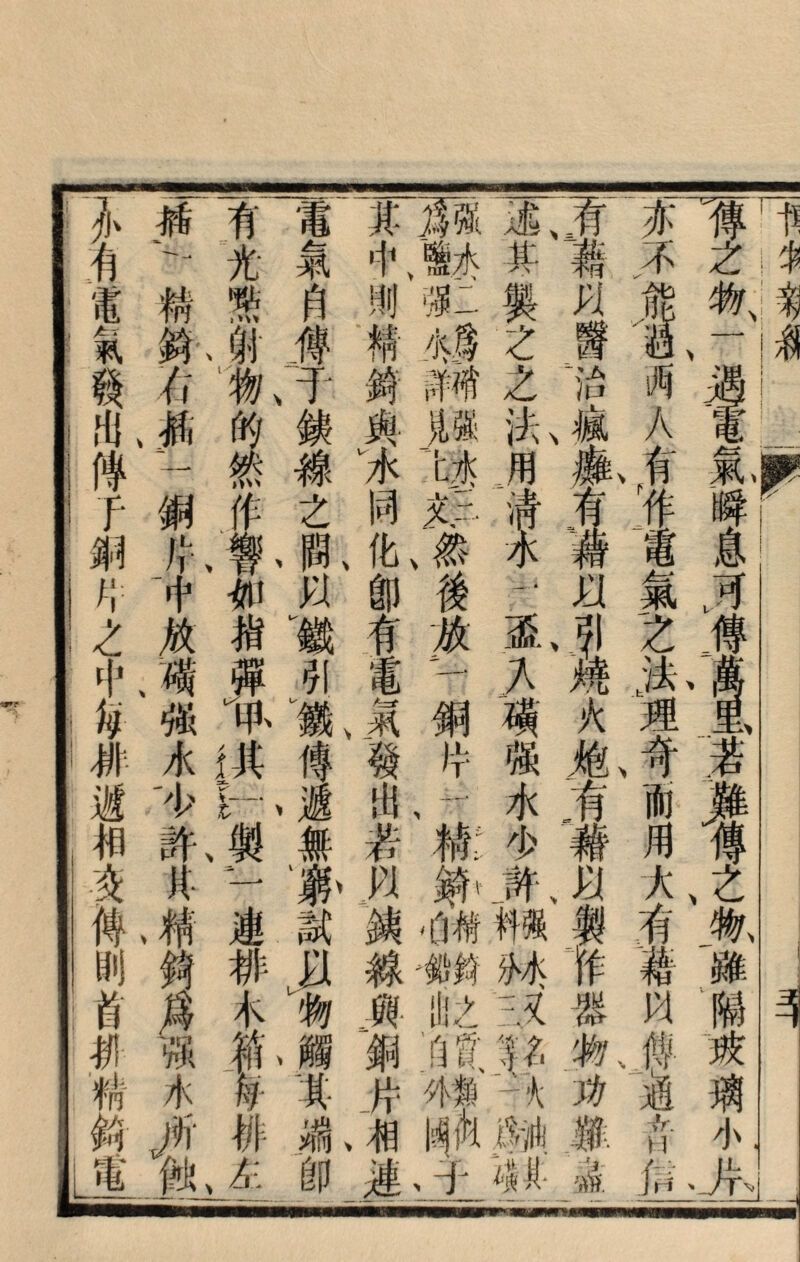 博物新編
傳之物、一遇電氣、瞬息可傳萬里、若難傳之物、雖隔玻璃小片、
亦不能過、西人有作電氣之法、理奇而用大、有藉以傳通音信、
有藉以醫治瘋癱、有藉以引燒火炮、有藉以製作器物、功難盡
述、其製之之法、用清水一盃、入磺强水少許、强水又名火油其料分三等一爲磺
强水、二爲硝强水、三爲鹽强水、詳見上文、然後放一銅片一精錡、精錡之質、類似白鉛出自外國于
其中、則精錡與水同化、卽有電氣發出、若以銕線與銅片相連、
電氣自傳于銕線之間、以鐵引鐵、傳遞無窮、試以物觸其端、卽
有光點射物、的然作響、如指彈甲、其一、製一連排木箱、每排左
插一精錡、右插一銅片、中放磺强水少許、其精錡爲强水所蝕、
亦有電氣發出、傳于銅片之中、每排遞相交傳、則首排精錡電